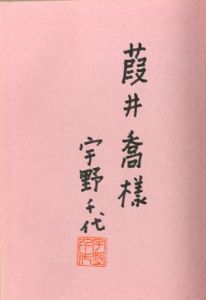 葭井喬様
宇野千代